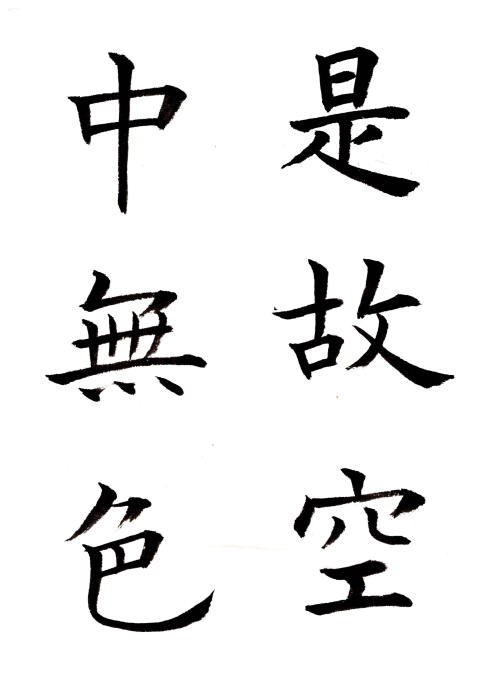 是故空
中無色